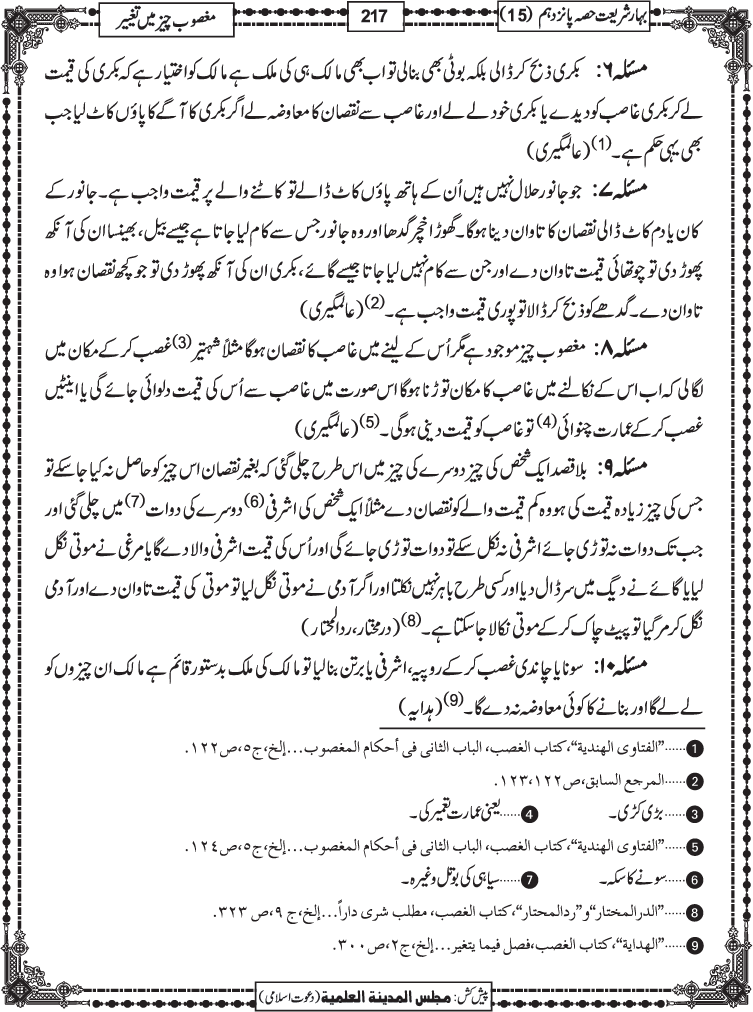 بہارِشریعت حصہ پانزدہم (15)
217
مغصوب چیز میں تغییر
مسئلہ ۶: بکری ذبح کر ڈالی بلکہ بوٹی بھی بنالی تو اب بھی مالک ہی کی ملک ہے مالک کو اختیار ہے کہ بکری کی قیمت
لے کر بکری غاصب کو دیدے یا بکری خود لے لے اور غاصب سے نقصان کا معاوضہ لے اگر بکری کا آگے کا پاؤں کاٹ لیا جب
بھی یہی حکم ہے۔(1) (عالمگیری)
مسئلہ ۷: جو جانور حلال نہیں ہیں اُن کے ہاتھ پاؤں کاٹ ڈالے تو کاٹنے والے پر قیمت واجب ہے۔ جانور کے
کان یا دم کاٹ ڈالی نقصان کا تاوان دینا ہوگا۔ گھوڑا خچر گدھا اور وہ جانور جس سے کام لیا جاتا ہے جیسے بیل، بھینسا ان کی آنکھ
پھوڑ دی تو چوتھائی قیمت تاوان دے اور جن سے کام نہیں لیا جاتا جیسے گائے، بکری ان کی آنکھ پھوڑ دی تو جو کچھ نقصان ہوا وہ
تاوان دے۔ گدھے کو ذبح کر ڈالا تو پوری قیمت واجب ہے۔(2) (عالمگیری)
مسئلہ ۸: مغصوب چیز موجود ہے مگر اُس کے لینے میں غاصب کا نقصان ہوگا مثلاً شہتیر(3) غصب کر کے مکان میں
لگالی کہ اب اس کے نکالنے میں غاصب کا مکان توڑنا ہوگا اس صورت میں غاصب سے اُس کی قیمت دلوائی جائے گی یا اینٹیں
غصب کر کے عمارت چنوائی(4) تو غاصب کو قیمت دینی ہوگی۔(5) (عالمگیری)
مسئلہ ۹: بلاقصد ایک شخص کی چیز دوسرے کی چیز میں اس طرح چلی گئی کہ بغیر نقصان اس چیز کو حاصل نہ کیا جاسکے تو
جس کی چیز زیادہ قیمت کی ہو وہ کم قیمت والے کو نقصان دے مثلاً ایک شخص کی اشرفی(6) دوسرے کی دوات(7) میں چلی گئی اور
جب تک دوات نہ توڑی جائے اشرفی نہ نکل سکے تو دوات توڑی جائے گی اور اُس کی قیمت اشرفی والا دے گا یا مرغی نے موتی نگل
لیا یا گائے نے دیگ میں سر ڈال دیا اور کسی طرح باہر نہیں نکلتا اور اگر آدمی نے موتی نگل لیا تو موتی کی قیمت تاوان دے اور آدمی
نگل کر مر گیا تو پیٹ چاک کر کے موتی نکالا جاسکتا ہے۔(8) (درمختار، ردالمحتار)
مسئلہ ۱۰: سونا یا چاندی غصب کر کے روپیہ، اشرفی یا برتن بنالیا تو مالک کی ملک بدستور قائم ہے مالک ان چیزوں کو
لے لے گا اور بنانے کا کوئی معاوضہ نہ دے گا۔(9) (ہدایہ)
1 ......”الفتاوی الهندیة“، کتاب الغصب، الباب الثانی فی أحکام المغصوب...إلخ، ج٥، ص١٢٢.
2 ......المرجع السابق، ص١٢٢،١٢٣.
3 ......بڑی کڑی۔ 4 ......یعنی عمارت تعمیر کی۔
5 ......”الفتاوی الهندیة“، کتاب الغصب، الباب الثانی فی أحکام المغصوب...إلخ، ج٥، ص١٢٤.
6 ......سونے کا سکہ۔ 7 ......سیاہی کی بوتل وغیرہ۔
8 ......”الدرالمختار“ و ”ردالمحتار“، کتاب الغصب، مطلب شری داراً...إلخ، ج٩، ص ٣٢٣.
9 ......”الهدایة“، کتاب الغصب، فصل فیما یتغیر...إلخ، ج٢، ص ٣٠٠.
پیش کش: مجلس المدینة العلمیة (دعوت اسلامی)